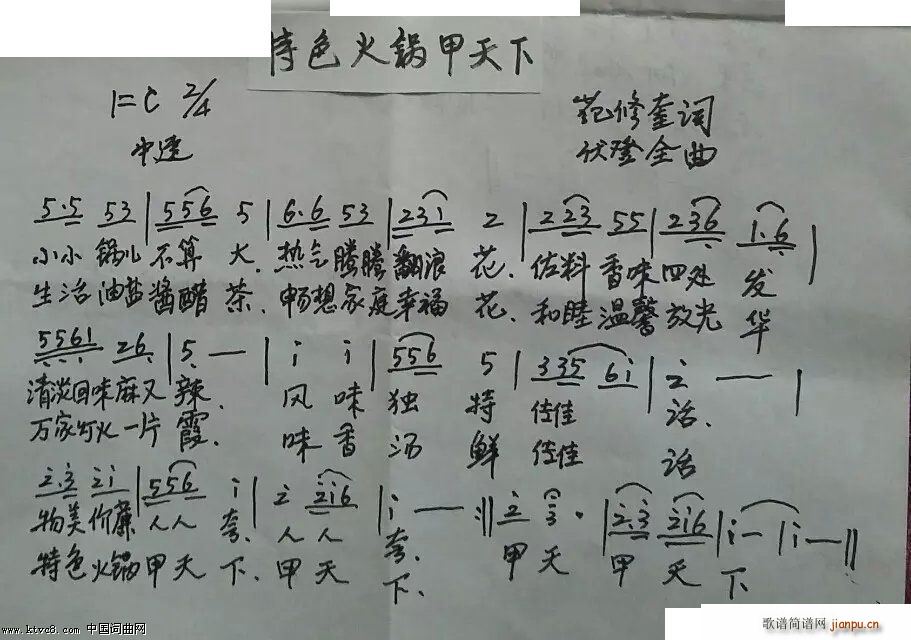 特色火锅甲天下
1=C 2/4
中速
范修奎词
伏登全曲
5·5 53 | 556 5 | 6·6 53 | 231 2 | 223 55 | 236 1·6 |
小小 锅儿 不算 大、热气 腾腾 翻浪 花、佐料 香味 四处 发
生活 油盐 酱醋 茶、畅想 家庭 幸福 花、和睦 温馨 放光 华
5561 26 | 5 — | i i | 556 5 | 335 6i | 2 — |
清淡回味 麻又 辣、风 味 独 特 佳佳 话、
万家灯火 一片 霞、味 香 汤 鲜 佳佳 话
2·3 2i | 556 i | 2 2i6 | i — :‖ 2 3· | 2·3 2i6 | i — | i — ‖
物美 价廉 人人 夸、人 人 夸、甲 天 甲 天 下
特色 火锅 甲天 下、甲 天 下、
www.ktvc8.com 中国词曲网
歌谱简谱网
jianpu.cn